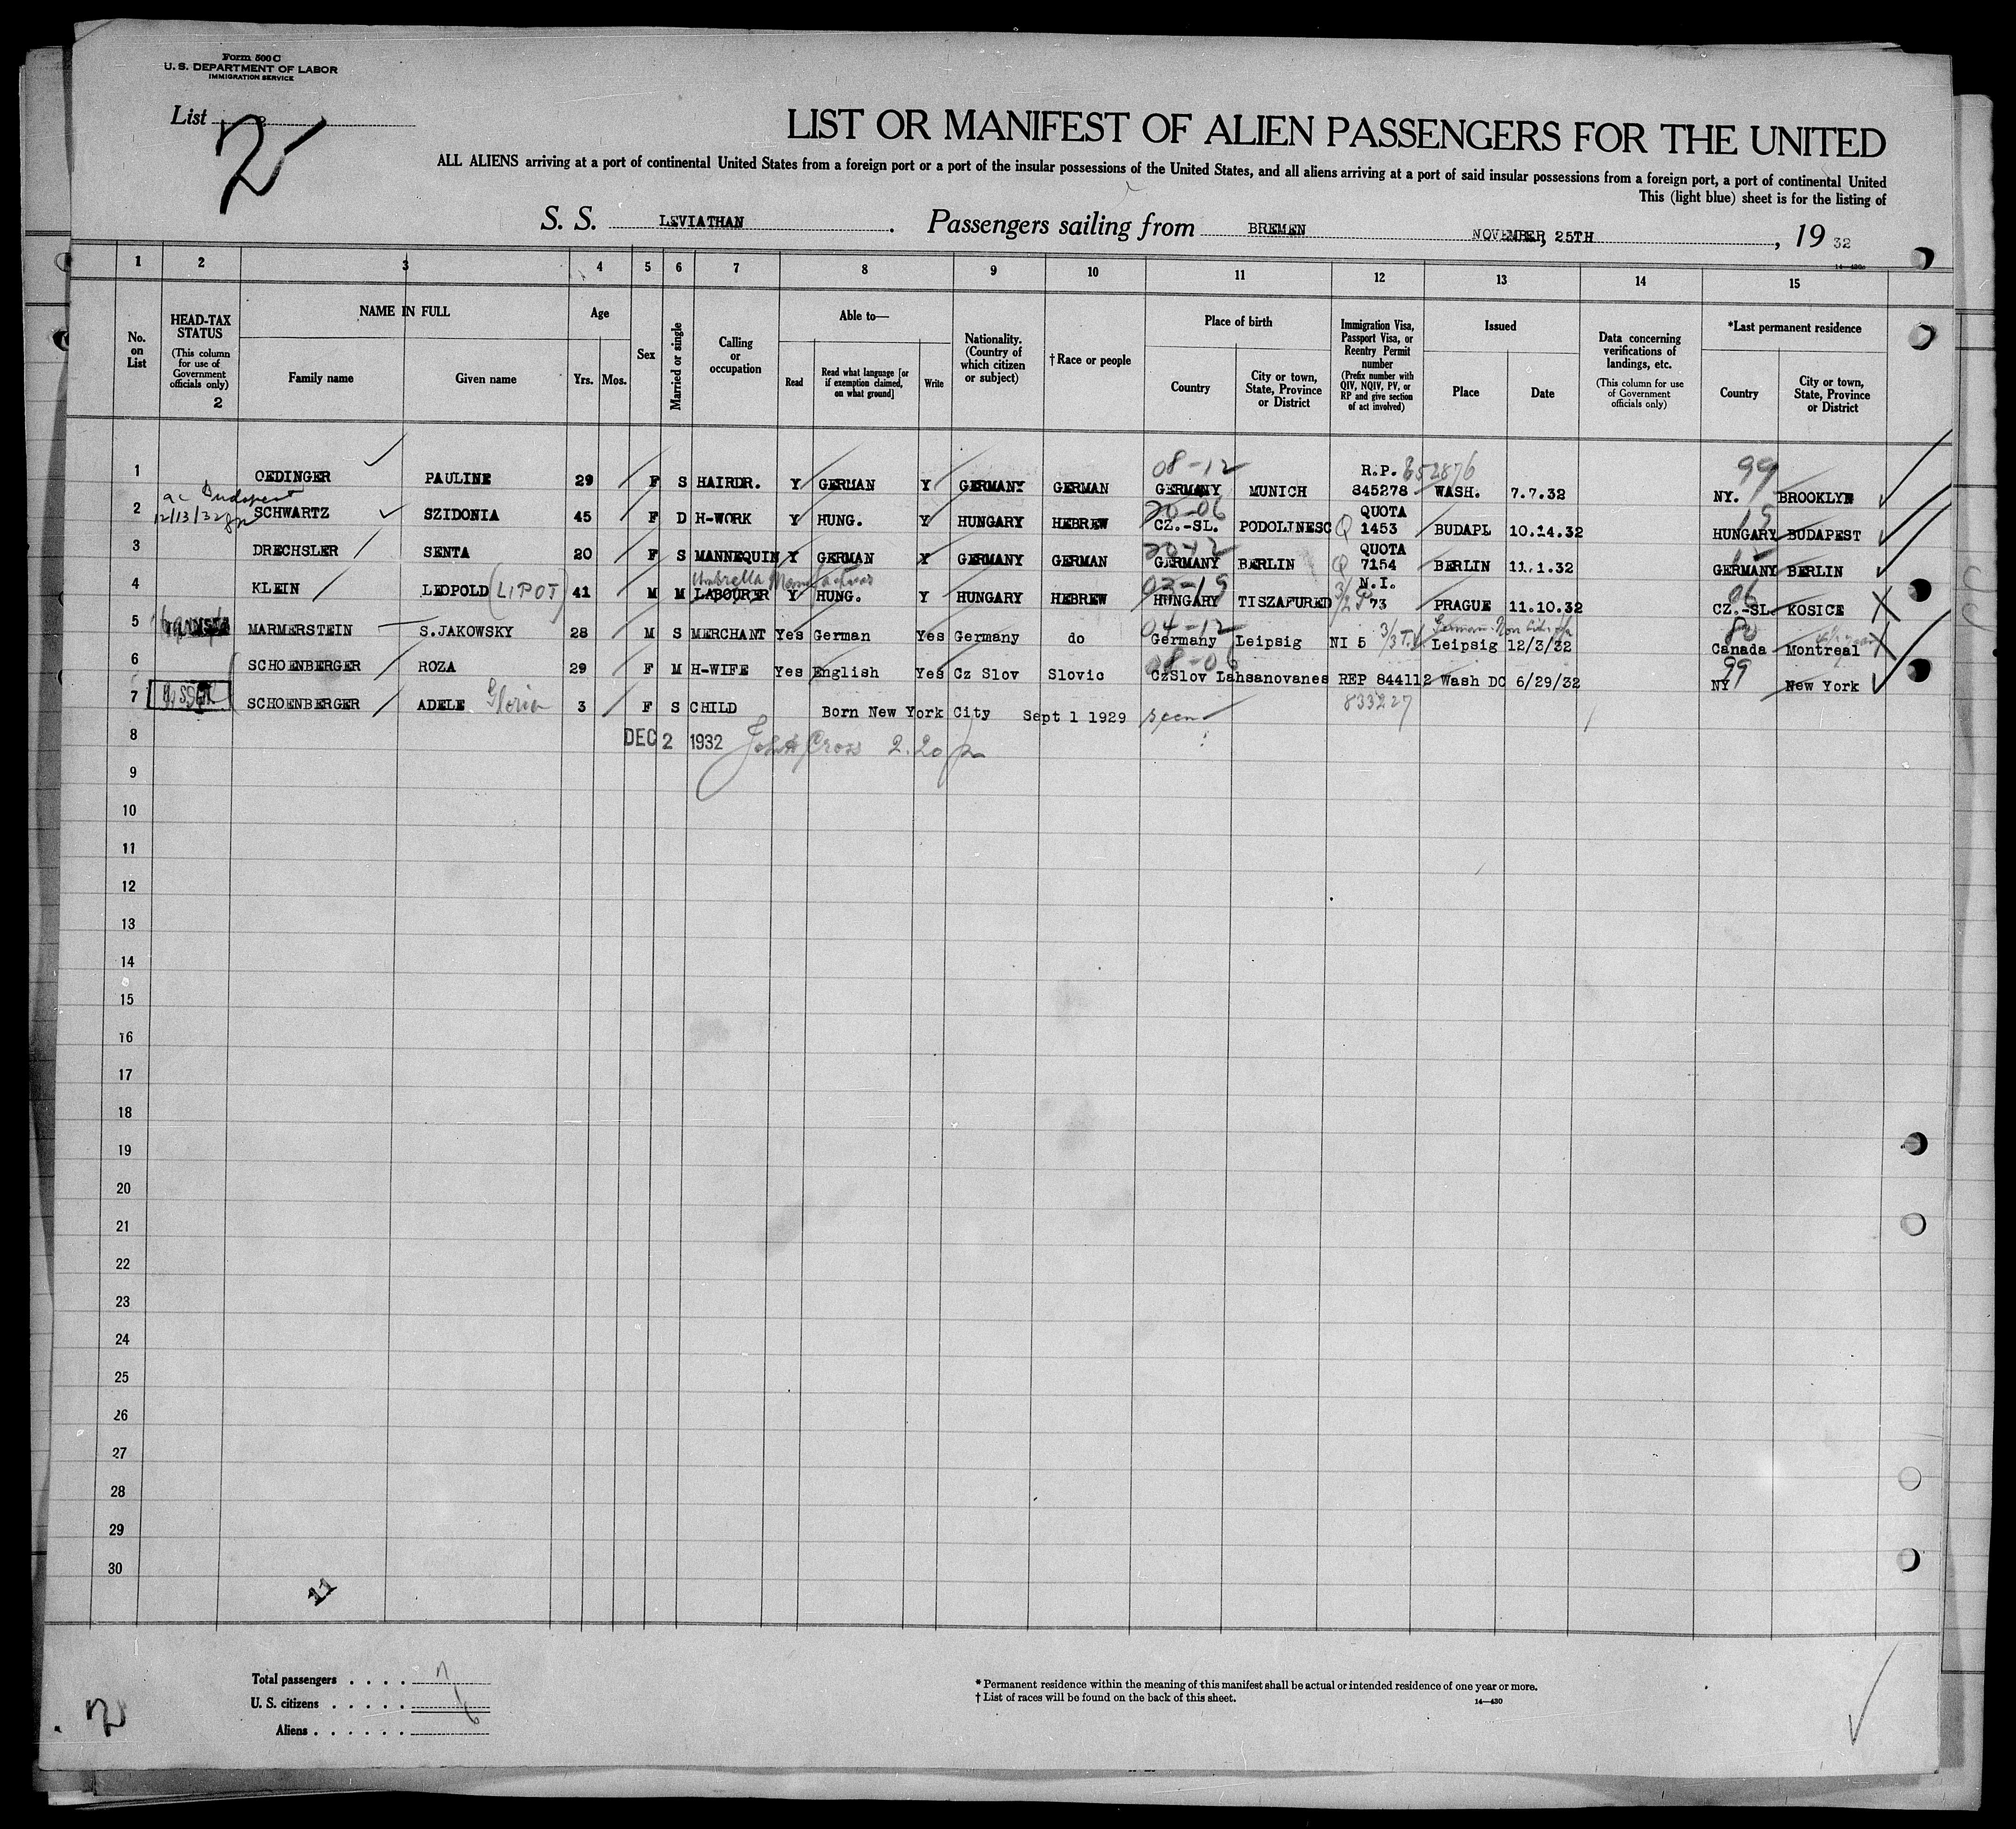 Form 500 C
U. S. DEPARTMENT OF LABOR
IMMIGRATION SERVICE
List 2
2
LIST OR MANIFEST OF ALIEN PASSENGERS FOR THE UNITED
ALL ALIENS arriving at a port of continental United States from a foreign port or a port of the insular possessions of the United States, and all aliens arriving at a port of said insular possessions from a foreign port, a port of continental United
This (light blue) sheet is for the listing of
S. S. LEVIATHAN. Passengers sailing from BREMEN NOVEMBER, 25TH, 19 32
1 2 3 4 5 6 7 8 9 10 11 12 13 14 15
No. on List
HEAD-TAX STATUS (This column for use of Government officials only) 2
NAME IN FULL Family name Given name
Age Yrs. Mos.
Sex
Married or single
Calling or occupation
Able to— Read Read what language [or if exemption claimed, on what ground] Write
Nationality. (Country of which citizen or subject)
†Race or people
Place of birth Country City or town, State, Province or District
Immigration Visa, Passport Visa, or Reentry Permit number (Prefix number with QIV, NQIV, PV, or RP and give section of act involved)
Issued Place Date
Data concerning verifications of landings, etc. (This column for use of Government officials only)
*Last permanent residence Country City or town, State, Province or District
08-12 R.P. 652876 99
1 OEDINGER PAULINE 29 F S HAIRDR. Y GERMAN Y GERMANY GERMAN GERMANY MUNICH 845278 WASH. 7.7.32 NY. BROOKLYN
Budapest 20-06 QUOTA 15
2 12/13/32 SCHWARTZ SZIDONIA 45 F D H-WORK Y HUNG. Y HUNGARY HEBREW CZ.-SL. PODOLINESC Q 1453 BUDAPL 10.14.32 HUNGARY BUDAPEST
20-12 QUOTA
3 DRECHSLER SENTA 20 F S MANNEQUIN Y GERMAN Y GERMANY GERMAN GERMANY BERLIN Q 7154 BERLIN 11.1.32 GERMANY BERLIN
Umbrella Manufacturer 03-15 N.I. 06
4 KLEIN LEOPOLD (LIPOT) 41 M M LABOURER Y HUNG. Y HUNGARY HEBREW HUNGARY TISZAFURED 3/2 73 PRAGUE 11.10.32 CZ.-SL. KOSICE
04-12 80
5 MARMERSTEIN S.JAKOWSKY 28 M S MERCHANT Yes German Yes Germany do Germany Leipsig NI 5 Leipsig 12/3/32 Canada Montreal
08-06 99
6 SCHOENBERGER ROZA 29 F M H-WIFE Yes English Yes Cz Slov Slovic CzSlov Lahsanovanes REP 844112 Wash DC 6/29/32 NY New York
7 SCHOENBERGER ADELE Gloria 3 F S CHILD Born New York City Sept 1 1929 seen 833227
8 DEC 2 1932 Cross 2.20 pm
9
10
11
12
13
14
15
16
17
18
19
20
21
22
23
24
25
26
27
28
29
30
11
Total passengers . . . . 7
U. S. citizens . . . . . 1
Aliens . . . . . . 6
2
* Permanent residence within the meaning of this manifest shall be actual or intended residence of one year or more.
† List of races will be found on the back of this sheet. 14—430